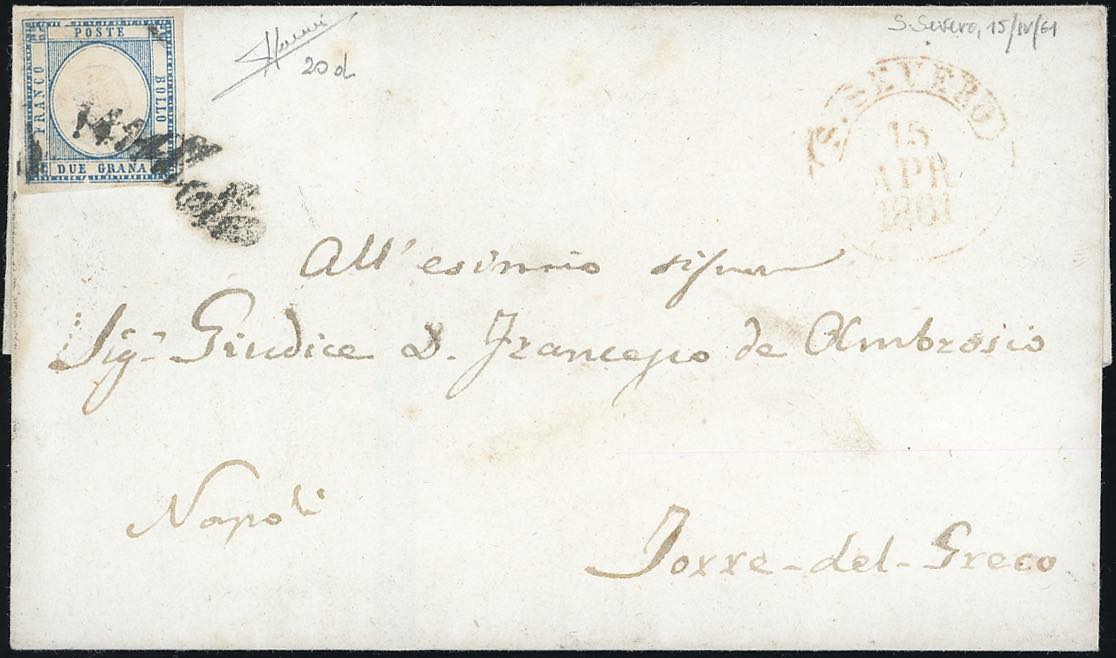 POSTE
FRANCO
BOLLO
DUE GRANA
20d
S. Severo, 15/IV/61
S. SEVERO
15
APR
1861
All'esimio
Sig.r Giudice D. Francesco de Ambrosio
Napoli
Torre-del-Greco